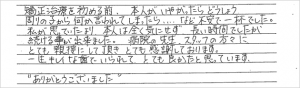 矯正治療を初める前、本人がいやがったらどうしよう
周りの子から何か言われてしまったら…など不安で一杯でした。
私が思っていたより本人は全く気にせず、長い時間でしたが
続ける事が出来ました。病院の先生、スタッフの方々に
とても親切にして頂きとても感謝しております。
一生キレイな歯でいられて、とても良かったと思っています。
"ありがとうございました"